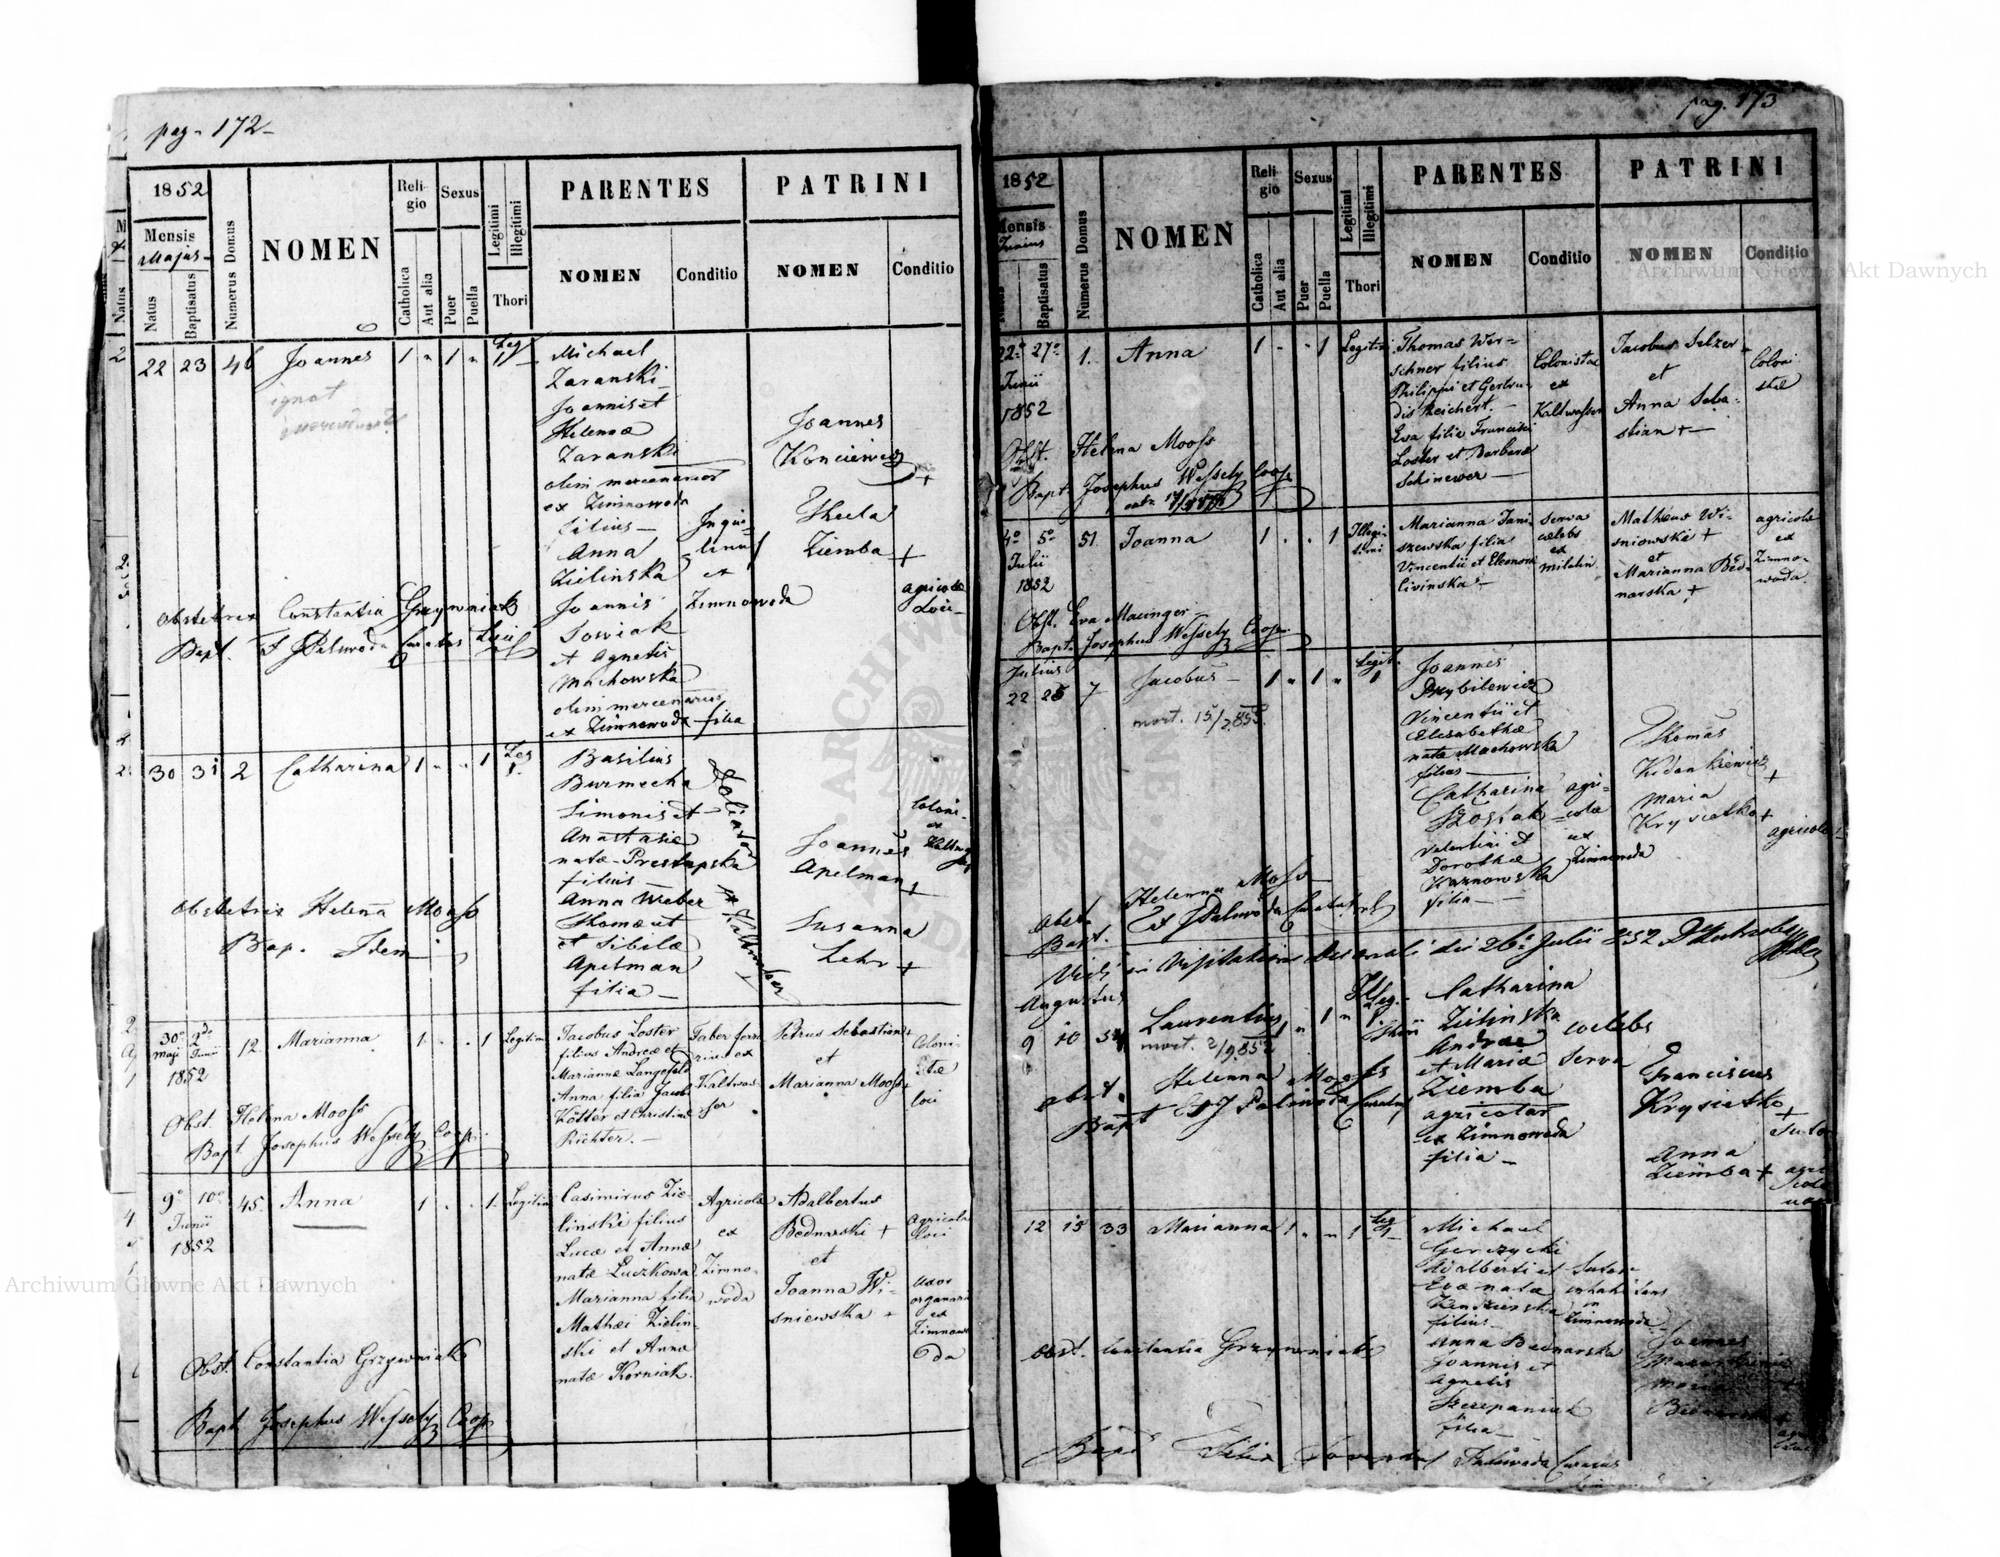 pag. 172
1852
Mensis
Majus
Natus
Baptisatus
Numerus Domus
NOMEN
Reli-
gio
Catholica
Aut alia
Sexus
Puer
Puella
Legitimi
Illegitimi
Thori
PARENTES
NOMEN
Conditio
PATRINI
NOMEN
Conditio
22 23 46 Joannes 1 " 1 " Leg 1
Michael
Zaranski
Joannis et
Helenæ
Zaranski
olim mercenarior
ex Zimnowoda
filius
Anna
Zielinska
Joannis
Sowiak
et Agnetis
Machowska
olim mercenarius
ex Zimnowoda filia
Inqui-
linus
ex
Zimnowoda
Joannes
Thecla
Ziemba +
agricolæ
Loci
Obstetrix Constantia Grzywniak
Bapt. F J Palwoda Curatus Loci
30 31 2 Catharina 1 " " 1 Leg 1.
Basilius
Burmecha
Simonis et
Anastasiæ
natæ
filius
Anna Weber
Thomæ et
et Sibilæ
Apelman
filia
ex Kaltwasser
Joannes
Apelman +
Susanna
Lehr +
Coloni
ex
Obstetrix Helena Mooss
Bap. Idem
30° 2do 12. Marianna 1. . . 1 Legitim
maji Junii
1852
Jacobus Loster
filius Andreæ et
Mariannæ Langofeld
Anna filia Jacobi
Kötter et Christinæ
Richter.
Faber ferra
rius ex
Kaltwas-
ser
Petrus Sebastian
et
Marianna Mooss
Coloni-
stæ
loci
Obst. Helena Mooss
Bapt Josephus Wessely Coop.
9° 10° 45. Anna 1. . . 1. Legitim
Junii
1852
Casimirus Zie-
linski filius
Lucæ et Annæ
natæ Luczkowa.
Marianna filia
Mathæi Zielin-
ski et Anna
natæ Korniak.
Agricolæ
ex
Zimno-
woda
Adalbertus
Bednarski +
et
Joanna Wi-
sniewska +
Agricola
loci
uxor
organarii
ex
Zimnow
oda
Obst. Constantia Grzywniak
Bapt Josephus Wessely Coop
pag. 173
1852
Mensis
Junius
Natus
Baptisatus
Numerus Domus
NOMEN
Reli-
gio
Catholica
Aut alia
Sexus
Puer
Puella
Legitimi
Illegitimi
Thori
PARENTES
NOMEN
Conditio
PATRINI
NOMEN
Conditio
22° 27° 1. Anna 1 . . 1 Legiti
Junii
1852
Thomas Wer-
schner filius
Philippi et Gertru-
dis Reichert.
Eva filia Francisci
Loster et Barbaræ
Schinewer
Colonistæ
ex
Kaltwasser
Jacobus Selzer
et
Anna Seba-
stian +
Coloni
stæ
Obst. Helena Mooss
Bapt. Josephus Wessely Coop
4° 5° 51. Joanna 1. . . 1 Illegi-
timi
Julii
1852
Marianna Jani-
szewska filia
Vincentii et Eleonora
Livinska
Serva
cælebs
ex
Milatin
Matheus Wi-
sniowski +
et
Marianna Bed-
narska +
agricola
ex
Zimno-
woda
Obst. Eva Mauinger
Bapt. Josephus Wessely Coop.
Julius
22 25 7 Jacobus 1 " 1 " Legit. 1
mort. 15/2 855.
Joannes
Przybilewicz
Vincentii et
Elisabethæ
nata Machowska
filius
Catharina
Szostak
Valentini et
Dorotheæ
Karnowska
filia
agri-
colæ
ex
Zimnowoda
Thomas
+
Maria
Krysiatko +
agricolæ
Obst. Helenna Mooss
Bapt. F J Palwoda Curatus
Vidi in Visitatione Decanali die 26 Julii 852
Augustus
9 10 54 Laurentius 1 " 1 " Illeg.
mort. 2/9 852
Catharina
Zielinska
Andreæ
et Mariæ
Ziemba
agricolar
ex Zimnowoda
filia
coelebs
Serva
Franciscus
Krysiatko
+
Anna
Ziemba +
Obst. Helenna Mooss
Bapt F J Palwoda Curatus
12 15 33 Marianna 1 " " 1 Leg 1
Michael
Gorczycki
Adalberti et
Evæ natæ
filius
Anna Bednarska
Joannis et
Agnetis
Szczepaniak
filia
Sutor
in
Zimnowoda
Joannes
Maria
Obst. Constantia Grzywniak
Bapt Felix Palwoda Curatus
Archiwum Główne Akt Dawnych
Archiwum Główne Akt Dawnych